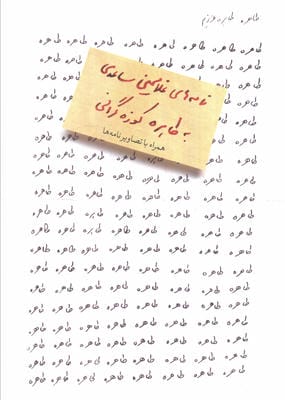 طاهره، طاهره عزیزم
طاهره طاهره طاهره طاهره طاهره طاهره طاهره طاهره طاهره
طاهره طاهره طاهره طاهره طاهره طاهره طاهره
طاهره طاهره طاهره طاهره
طاهره طاهره طاهره طاهره
طاهره طاهره طاهره طاهره
نامه‌های غلامحسین ساعدی
به طاهره کوزه‌گرانی
همراه با تصاویر نامه‌ها
طاهره طاهره طاهره
طاهره طاهره طاهره طاهره طاهره طاهره
طاهره طاهره طاهره طاهره طاهره طاهره طاهره طاهره طاهره
طاهره طاهره طاهره طاهره طاهره طاهره طاهره طاهره طاهره
طاهره طاهره طاهره طاهره طاهره طاهره طاهره طاهره طاهره
طاهره طاهره طاهره طاهره طاهره طاهره طاهره طاهره طاهره
طاهره طاهره طاهره طاهره طاهره طاهره طاهره طاهره طاهره
طاهره طاهره طاهره طاهره طاهره طاهره طاهره طاهره طاهره
طاهره طاهره طاهره طاهره طاهره طاهره طاهره طاهره طاهره
طاهره طاهره طاهره طاهره طاهره طاهره طاهره طاهره طاهره
طاهره طاهره طاهره طاهره طاهره طاهره طاهره طاهره طاهره
طاهره طاهره طاهره طاهره طاهره طاهره طاهره طاهره طاهره
طاهره طاهره طاهره طاهره طاهره طاهره طاهره طاهره طاهره